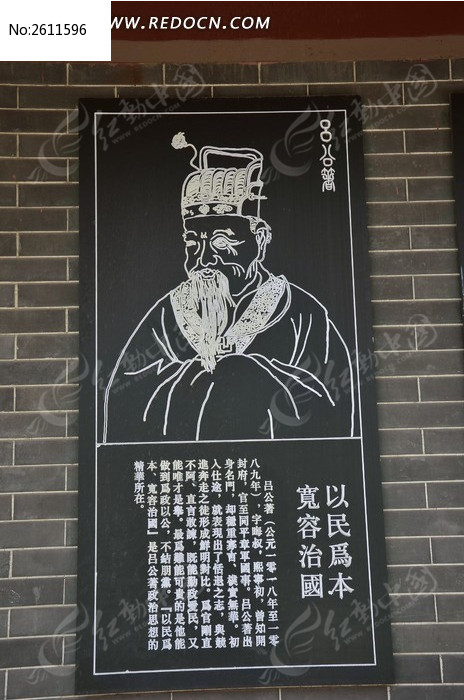 No:2611596
WWW.REDOCN.COM
吕公著
以民爲本
寬容治國
吕公著（公元一零一八年至一零
八九年），字晦叔，熙寧初，曾知開
封府，官至同平章軍國事。吕公著出
身名門，却穩重寡言，樸實無華。初
入仕途，就表現出了恬退之志，與競
進奔走之徒形成鮮明對比。爲官剛直
不阿、直言敢諫，既能勤政愛民，又
能唯才是舉。最爲難能可貴的是他能
做到爲政以公，不結朋黨。『以民爲
本、寬容治國』是吕公著政治思想的
精華所在。